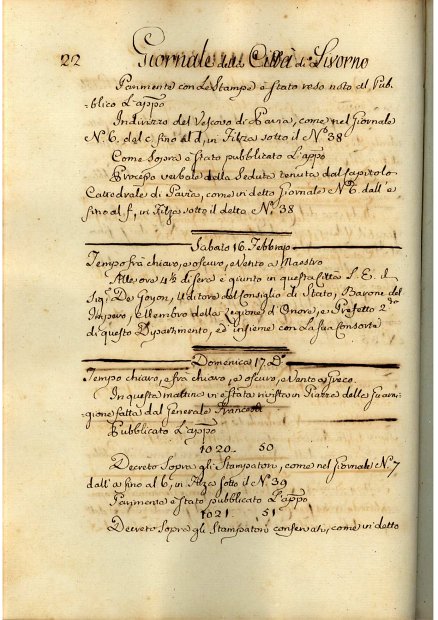 22 Giornale della Città di Livorno
Parimente con le Stampe è stato reso noto al Pub-
blico L'appo
Indirizzo del Vescovo di Pavia, come nel Giornale
N. 6. dal c fino al d, in Filza sotto il N.º 38
Come Sopra è stato pubblicato L'appo
Processo verbale della Seduta tenuta dal Capitolo
Cattedrale di Pavia, come in detto Giornale N.º 6. dall' e
fino al f, in Filza sotto il detto N.º 38
Sabato 16. Febbrajo
Tempo frà chiaro, e oscuro, e Vento a Maestro
Alle ore 4½ di sera è giunto in questa Città S. E. il
Sig.r De Goyon, Uditore del Consiglio di Stato, Barone del
Impero, e Membro della Legione d'Onore, e Prefetto
di questo Dipartimento, ed insieme con La sua Consorte
Domenica 17. D.º
Tempo chiaro, e frà chiaro, e oscuro, e Vento a Greco.
In questa mattina vi è stata rivista in Piazza della Guarni-
gione fatta dal Generale Francesi
Pubblicato L'appo
1020. 50
Decreto Sopra gli Stampatori, come nel Giornale N.º 7
dall' a fino al b, in Filza sotto il N.º 39
Parimente è stato pubblicato L'appo
1021. 51
Decreto Sopra gli Stampatori conservati, come in detto